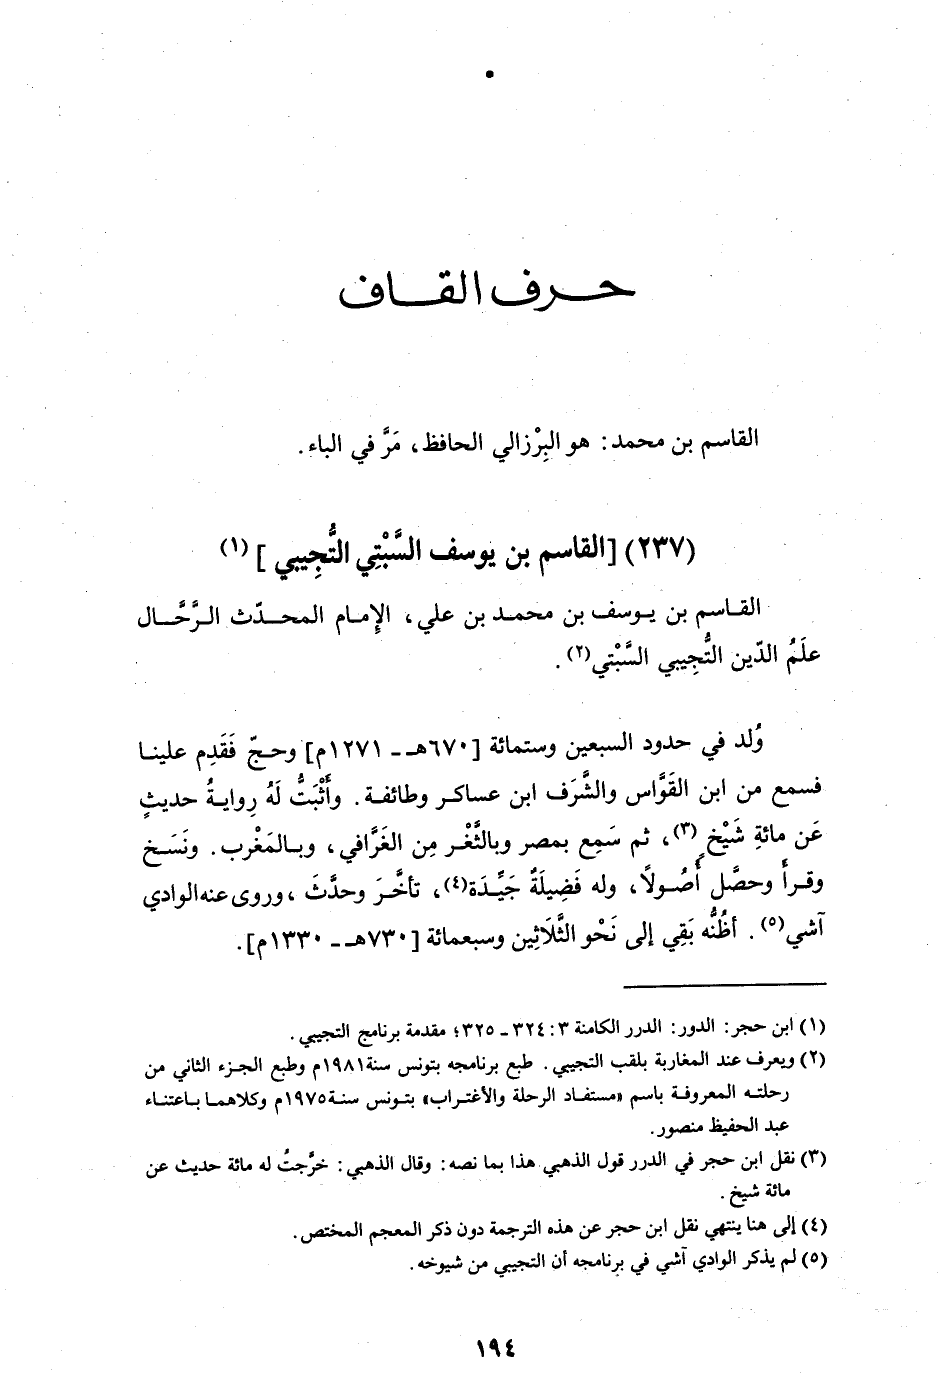 حرف القاف
القاسم بن محمد: هو البِرْزالي الحافظ، مَرَّ في الباء.
(٢٣٧) [القاسم بن يوسف السَّبْتِي التُّجِيبي] (١)
القاسم بن يوسف بن محمد بن علي، الإِمام المحدّث الرَّحَّال
علَمُ الدّين التُّجِيبي السَّبْتي(٢).
وُلد في حدود السبعين وستمائة [٦٧٠هـ - ١٢٧١م] وحجّ فَقَدِم علينا
فسمع من ابن القَوَّاس والشَّرَف ابن عساكر وطائفة. وأَثْبَتُّ لَهُ رِوايةُ حديثٍ
عَن مائةِ شَيْخٍ(٣)، ثم سَمِع بمصر وبالثَّغْر مِن الغَرَّافي، وبالمَغْرب. ونَسَخ
وقرأَ وحصَّل أُصُولًا، وله فَضِيلَةٌ جَيِّدَة(٤)، تأخَّرَ وحدَّثَ، وروى عنه الوادي
آشي(٥). أظُنُّه بَقِي إلى نَحْو الثَّلَاثِين وسبعمائة [٧٣٠هـ - ١٣٣٠م].
(١) ابن حجر: الدور: الدرر الكامنة ٣: ٣٢٤ - ٣٢٥؛ مقدمة برنامج التجيبي.
(٢) ويعرف عند المغاربة بلقب التجيبي. طبع برنامجه بتونس سنة ١٩٨١م وطبع الجزء الثاني من
رحلته المعروفة باسم «مستفاد الرحلة والأغتراب» بتونس سنة ١٩٧٥م وكلاهما باعتناء
عبد الحفيظ منصور.
(٣) نقل ابن حجر في الدرر قول الذهبي هذا بما نصه: وقال الذهبي: خرَّجتُ له مائة حديث عن
مائة شيخ.
(٤) إلى هنا ينتهي نقل ابن حجر عن هذه الترجمة دون ذكر المعجم المختص.
(٥) لم يذكر الوادي آشي في برنامجه أن التجيبي من شيوخه.
١٩٤